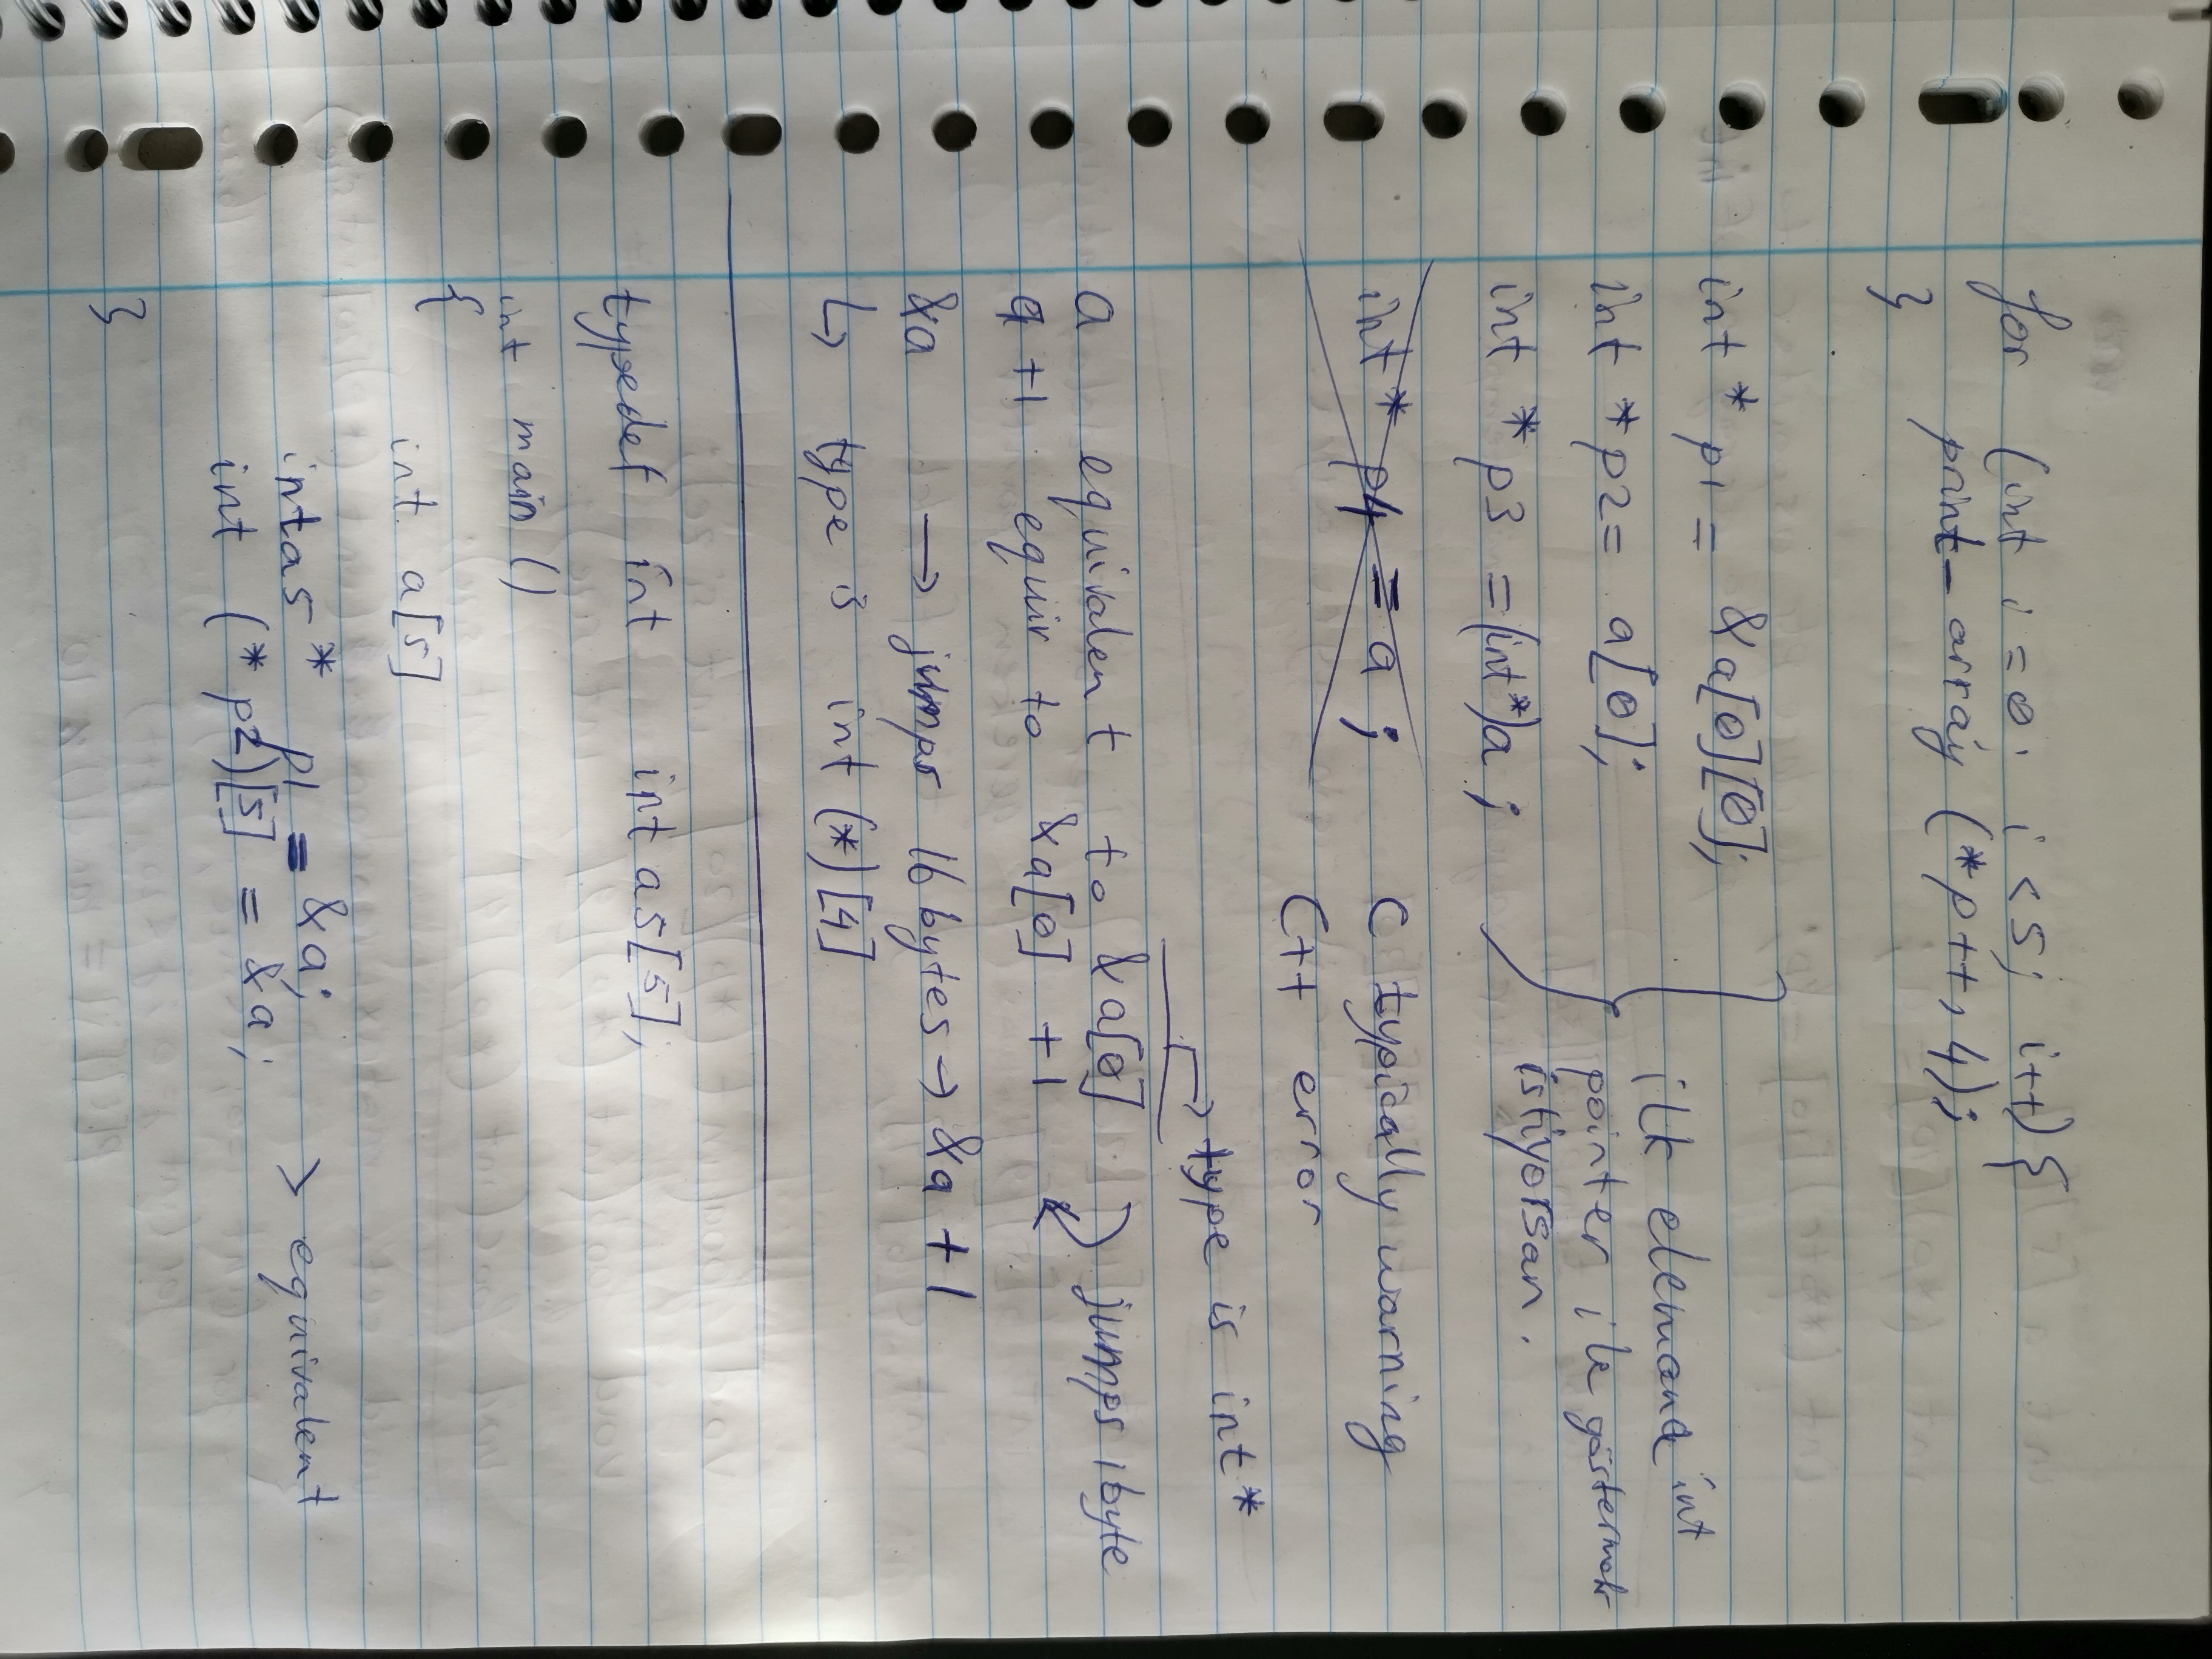 for (int i = 0; i < 5; i++) {
print_array (*p++, 4);
}
int * p1 = &a[0][0];
int * p2 = a[0];
int * p3 = (int*)a ;
ilk elemana int
pointer ile göstermek
istiyorsan.
int * p4 = a ; C typically warning
C++ error
→ type is int *
a equivalent to &a[0] jumps 1 byte
a +1 equiv to &a[0] +1
&a → jumps 16 bytes → &a + 1
↳ type is int (*) [4]
typedef int inta5[5];
int main ()
{
int a[5]
inta5 * p1 = &a; > equivalent
int (* p2)[5] = &a;
}